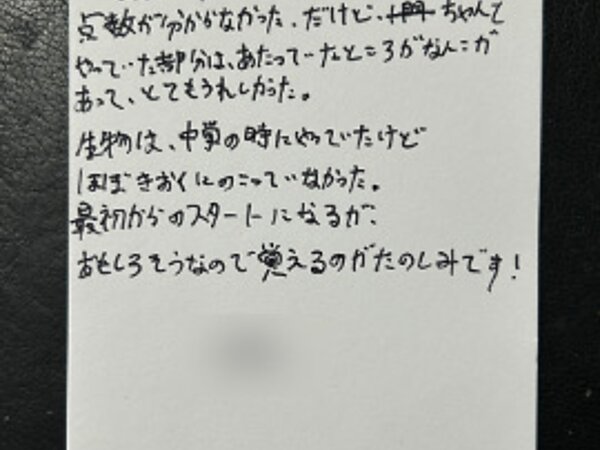 点数が分からなかった。だけど、ちゃんと
やっていた部分は、あたっていたところがなんこか
あって、とてもうれしかった。
生物は、中学の時にやっていたけど
ほぼきおくにのこっていなかった。
最初からのスタートになるが、
おもしろそうなので覚えるのがたのしみです!